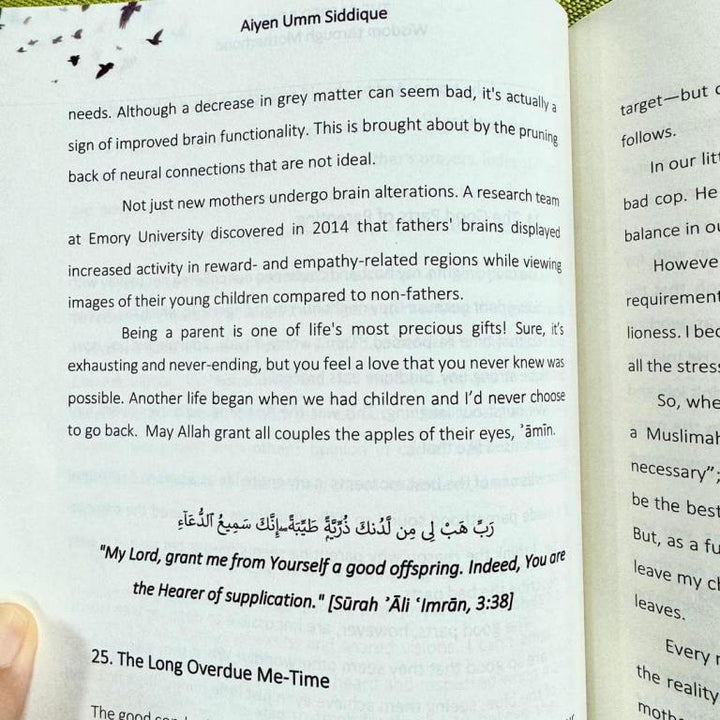 Aiyen Umm Siddique
needs. Although a decrease in grey matter can seem bad, it's actually a
sign of improved brain functionality. This is brought about by the pruning
back of neural connections that are not ideal.
Not just new mothers undergo brain alterations. A research team
at Emory University discovered in 2014 that fathers' brains displayed
increased activity in reward- and empathy-related regions while viewing
images of their young children compared to non-fathers.
Being a parent is one of life's most precious gifts! Sure, it's
exhausting and never-ending, but you feel a love that you never knew was
possible. Another life began when we had children and I'd never choose
to go back. May Allah grant all couples the apples of their eyes, ʾāmīn.
رَبِّ هَبْ لِى مِن لَّدُنكَ ذُرِّيَّةً طَيِّبَةً ۖ إِنَّكَ سَمِيعُ ٱلدُّعَآءِ
"My Lord, grant me from Yourself a good offspring. Indeed, You are
the Hearer of supplication." [Sūrah ʾĀli ʿImrān, 3:38]
25. The Long Overdue Me-Time
The good
target—but
follows.
In our
bad cop. He
balance in
lioness. I
all the
So,
a
necessary";
be the best
But, as a
leave my
leaves.
Every
the reality